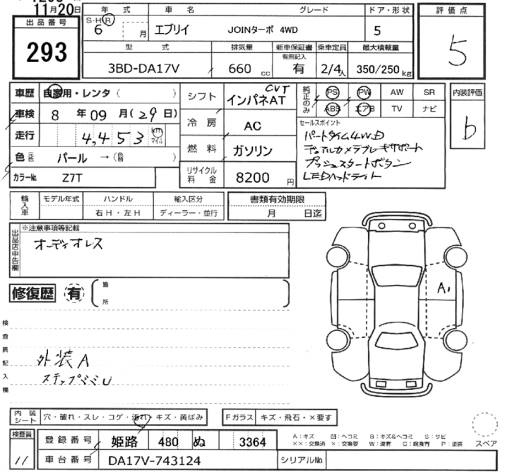 11月20日
出品番号
293
年式 車名 グレード ドア・形状 評価点
S・H・R 6 年 月 エブリイ JOINターボ 4WD 5 5
型式 排気量 新車保証書 乗車定員 最大積載量
有無記入
3BD-DA17V 660 cc 有 2/4人 350/250 kg
車歴 自家用・レンタ( )
車検 8年 09月(29日)
走行 4,453 km マイル
色 パール →( )
カラーNo. Z7T
シフト CVT インパネAT
冷房 AC
燃料 ガソリン
リサイクル料金 8200円
純正のみ PS PW AW SR
ABS エアB TV ナビ
内装評価
b
セールスポイント
パートタイム4WD
デュアルカメラブレーキサポート
プッシュスタートボタン
LEDヘッドライト
輸入車 モデル年式 ハンドル 輸入区分
年 右H・左H ディーラー・並行
書類有効期限
月 日迄
出品店申告欄
※注意事項等記載
オーディオレス
修復歴 有
箇所
検査員記入欄
外装A
ステップミミU
A1
内装シート 穴・破れ・スレ・コゲ・汚れ・キズ・黄ばみ
Fガラス キズ・飛石・×要す
検査員
11
登録番号 姫路 480 ぬ 3364
車台番号 DA17V-743124
シリアルNo.
A:キズ U:ヘコミ B:キズ&ヘコミ S:サビ
××:交換済 ×:交換要 W:波有 C:腐食有 P:塗装
スペア